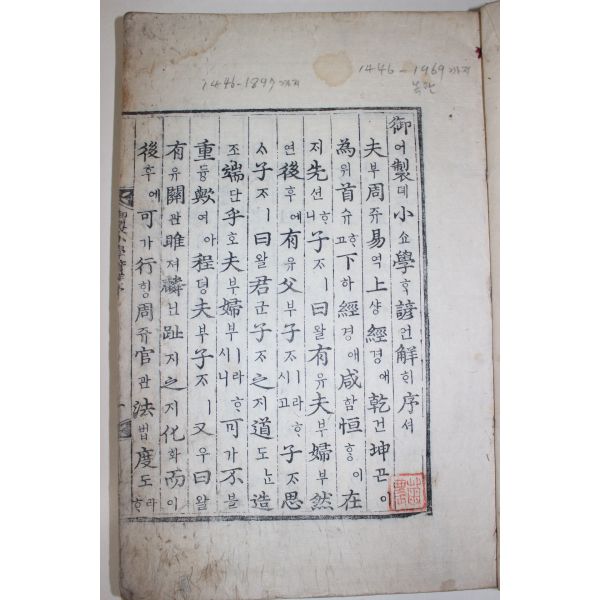 1446-1969까지
목판
1446-1897까지
御어製뎨小쇼學ᄒᆞᆨ諺언解ᄒᆡ序셔
夫부周쥬易역上샹經경애乾건坤곤이
為위首슈ᄒᆞ고下하經경애咸함恒ᄒᆞᆼ이在
ᄌᆡ先션ᄒᆞ니子ᄌᆞㅣ曰왈有유夫부婦부然
연後후에有유父부子ᄌᆞㅣ라ᄒᆞ시고子ᄌᆞ思
ᄉᆞ子ᄌᆞㅣ曰왈君군子ᄌᆞ之지道도ᄂᆞᆫ造
조端단乎호夫부婦부ㅣ라ᄒᆞ시니可가不불
重듕歟여아程뎡夫부子ᄌᆞㅣ又우曰왈
有유關관雎져麟닌趾지之지化화而이
後후에可가行ᄒᆡᆼ周쥬官관法법度도ㅣ라ᄒᆞ